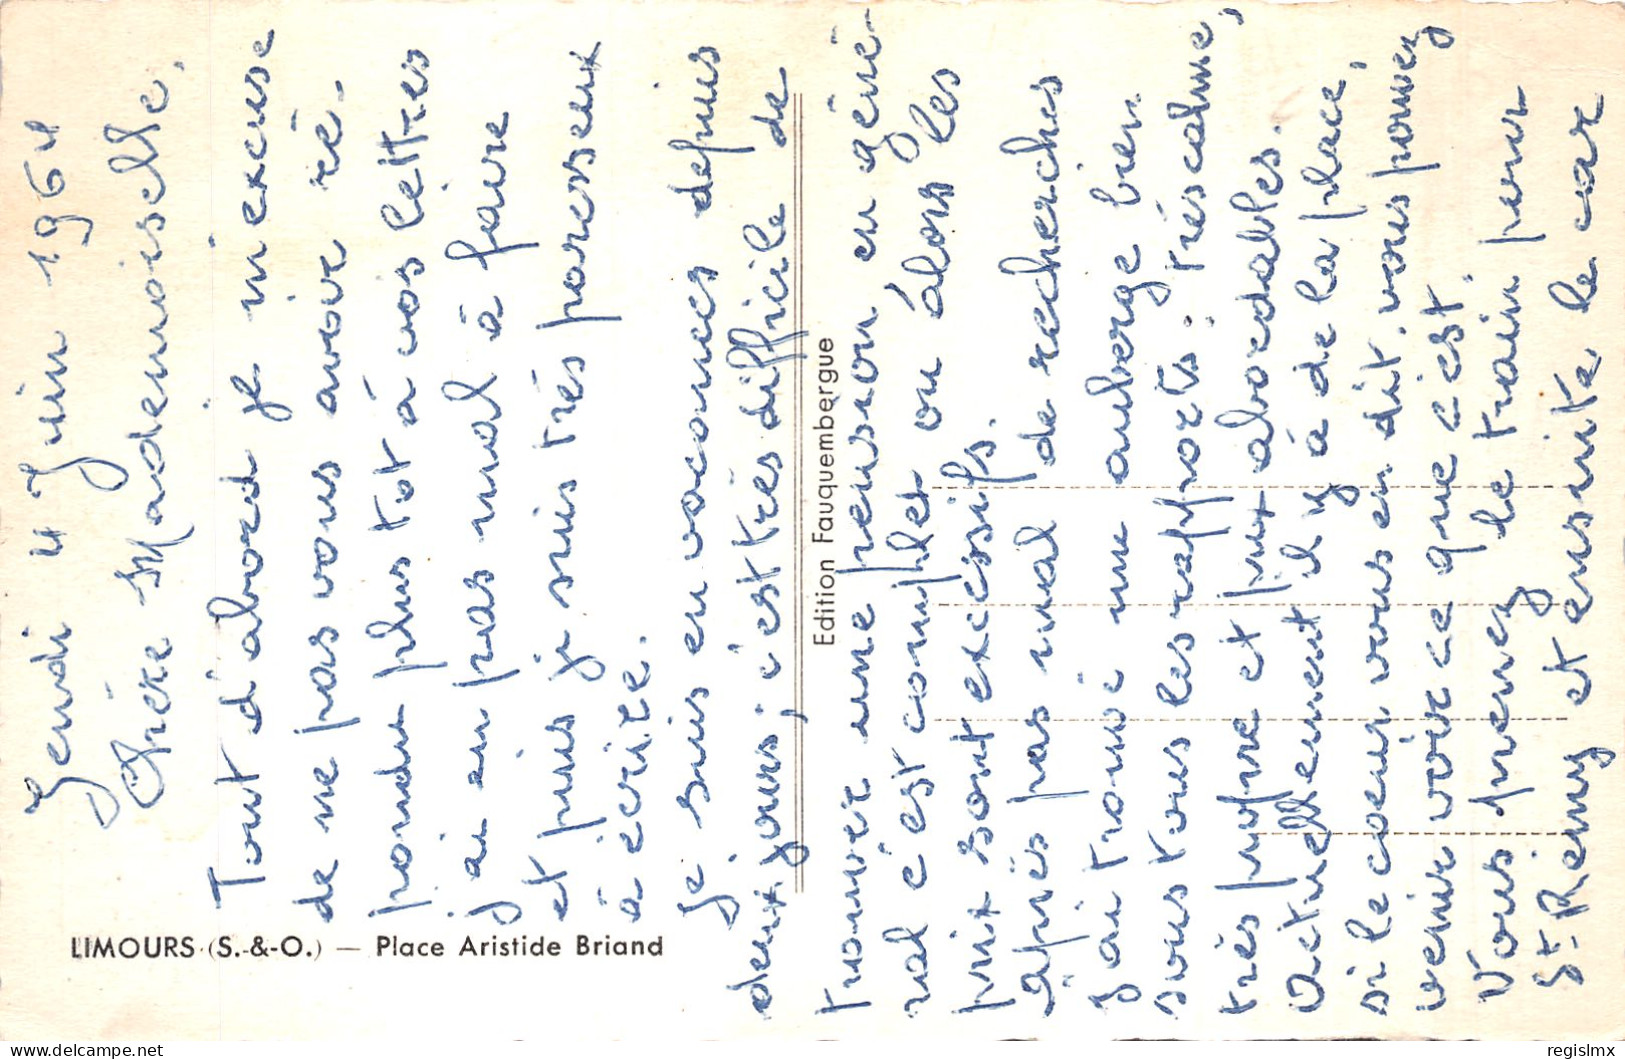 Jeudi 4 Juin 1964
Chère Mademoiselle,
Tout d'abord je m'excuse
de ne pas vous avoir ré-
pondu plus tot à vos lettres
j'ai eu pas mal à faire
et puis je suis très paresseux
à écrire.
Je suis en vacances depuis
deux jours; c'est très difficile de
trouver une pension en géné-
ral c'est complet ou alors les
prix sont excessifs.
Après pas mal de recherches
j'ai trouvé une auberge bien
sous tous les rapports: très calme,
très propre et prix abordables.
Actuellement il y à de la place,
si le coeur vous en dit, vous pouvez
venir voir ce que c'est.
Vous prenez le train pour
St. Rémy et ensuite le car
LIMOURS (S.-&-O.) — Place Aristide Briand
Edition Fauquembergue
regislmx